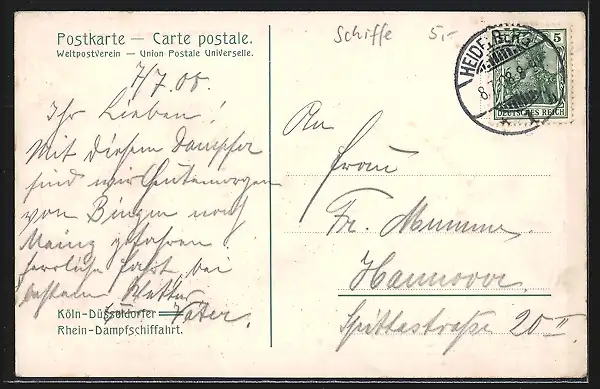 Postkarte — Carte postale.
Weltpostverein — Union Postale Universelle.
Schiffe 5,-
7/7.08.
Ihr Lieben!
Mit diesem Dampfer
sind wir heute morgen
von Bingen nach
Mainz gefahren
herrliche Fahrt bei
bestem Wetter
Vater.
Köln-Düsseldorfer
Rhein-Dampfschiffahrt.
HEIDELBERG
8.
5
DEUTSCHES REICH
An
Frau
Fr. Mumme.
Hannover.
Spittastraße 20 II